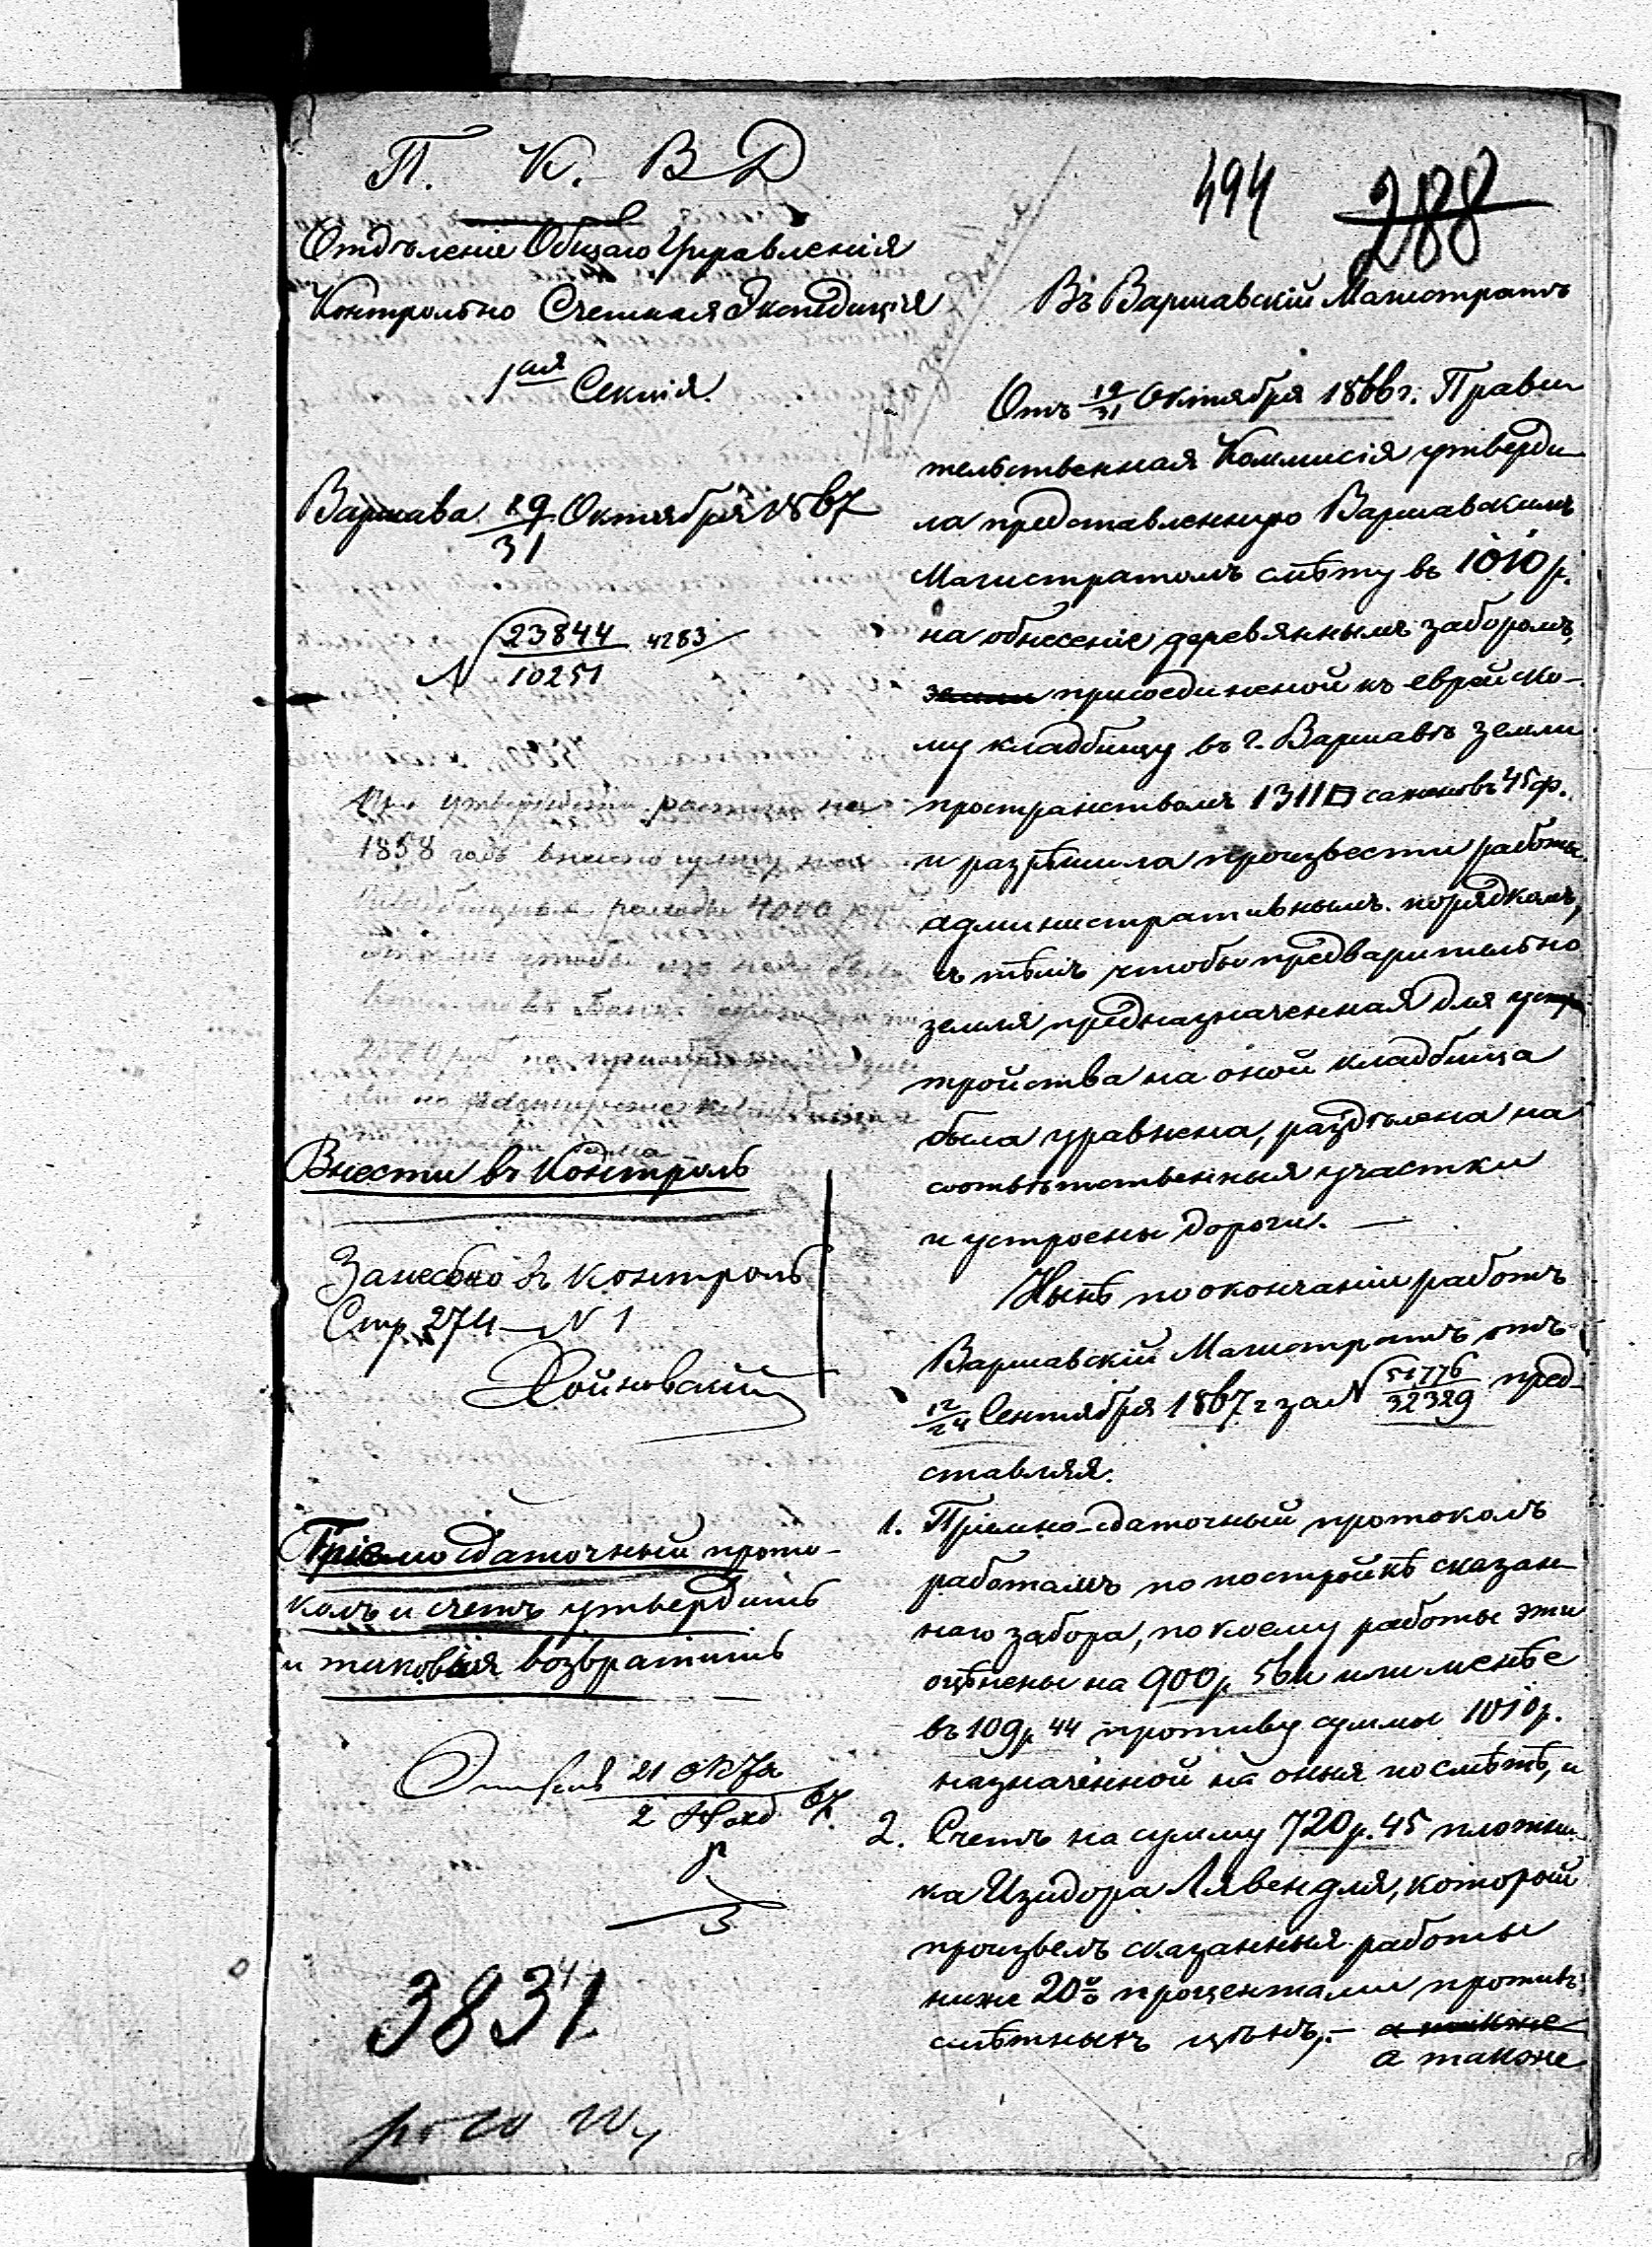 П. К. В Д
Отдѣленіе Общаго Управленія
Контрольно Счетная Экспедиція
1ая Секція.
Варшава 19/31 Октября 1867
№ 23844/10251 4283
утвержденіи на
1858 годъ
расходы 4000
Банка
Внести въ Контроль
Занесено въ контроль
Стр. 274 № 1
Хойновскій
Пріемосдаточный прото-
колъ и счетъ утвердить
и таковыя возвратить
21 Окт
2 Нояб 67.
3831
494 288
Въ Варшавскій Магистратъ
Отъ 19/31 Октября 1866 г. Прави
тельственная Коммисія утверди
ла представленную Варшавскимъ
Магистратомъ смѣту въ 1010 р.
на обнесеніе деревяннымъ заборомъ,
земли присоединеной къ еврейско-
му кладбищу въ г. Варшавѣ земли
пространствомъ 1311 □ саженовъ 45 ф.
и разрѣшила произвести работы
административнымъ порядкомъ,
съ тѣмъ чтобы предварительно
земля предназначенная для уст
тройства на оной кладбища
была уравнена, раздѣлена на
соотвѣтственныя участки
и устроены дороги. —
Нынѣ по окончаніи работъ
Варшавскій Магистратъ отъ
12/24 Сентября 1867 г за № 51776/32329 пред-
ставляя.
1. Пріемно-сдаточный протоколъ
работамъ по постройкѣ сказан-
наго забора, по коему работы эти
оцѣнены на 900 р. 56 к или менѣе
въ 109 р 44 противу суммы 1010 р.
назначенной на оныя по смѣтѣ, и
2. Счетъ на сумму 720 р. 45 плотни-
ка Изидора Лявендля, который
произвелъ сказанныя работы
ниже 20% процентами противъ
смѣтныхъ цѣнъ,- а также
а также